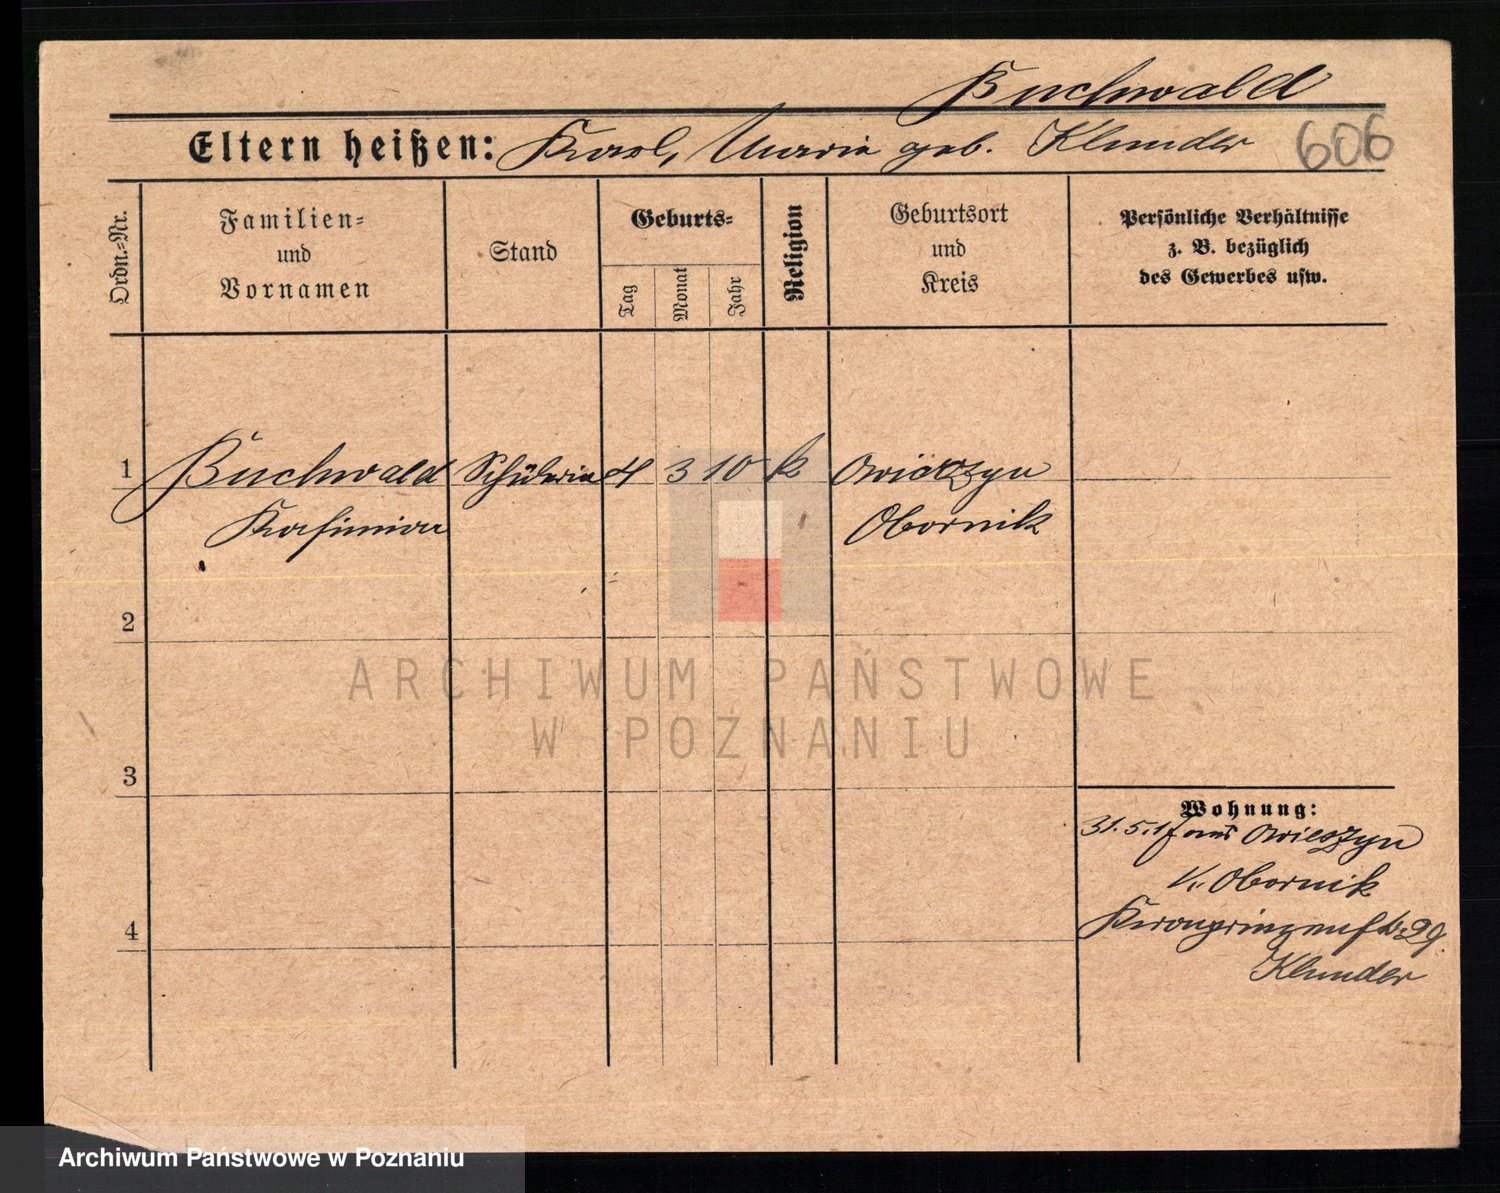 Buchwald
Eltern heißen: Karl, Maria geb. Klunder 606
Ordn.-Nr.
Familien-
und
Vornamen
Stand
Geburts-
Tag
Monat
Jahr
Religion
Geburtsort
und
Kreis
Persönliche Verhältnisse
z. B. bezüglich
des Gewerbes usw.
1 Buchwald Schülerin 4 3 10 k
Obornik
2
ARCHIWUM PAŃSTWOWE
W POZNANIU
3
Wohnung:
31.5.17 aus Owieszyn
K. Obornik
4
Kronprinzenstr. 29
Klunder
Archiwum Państwowe w Poznaniu